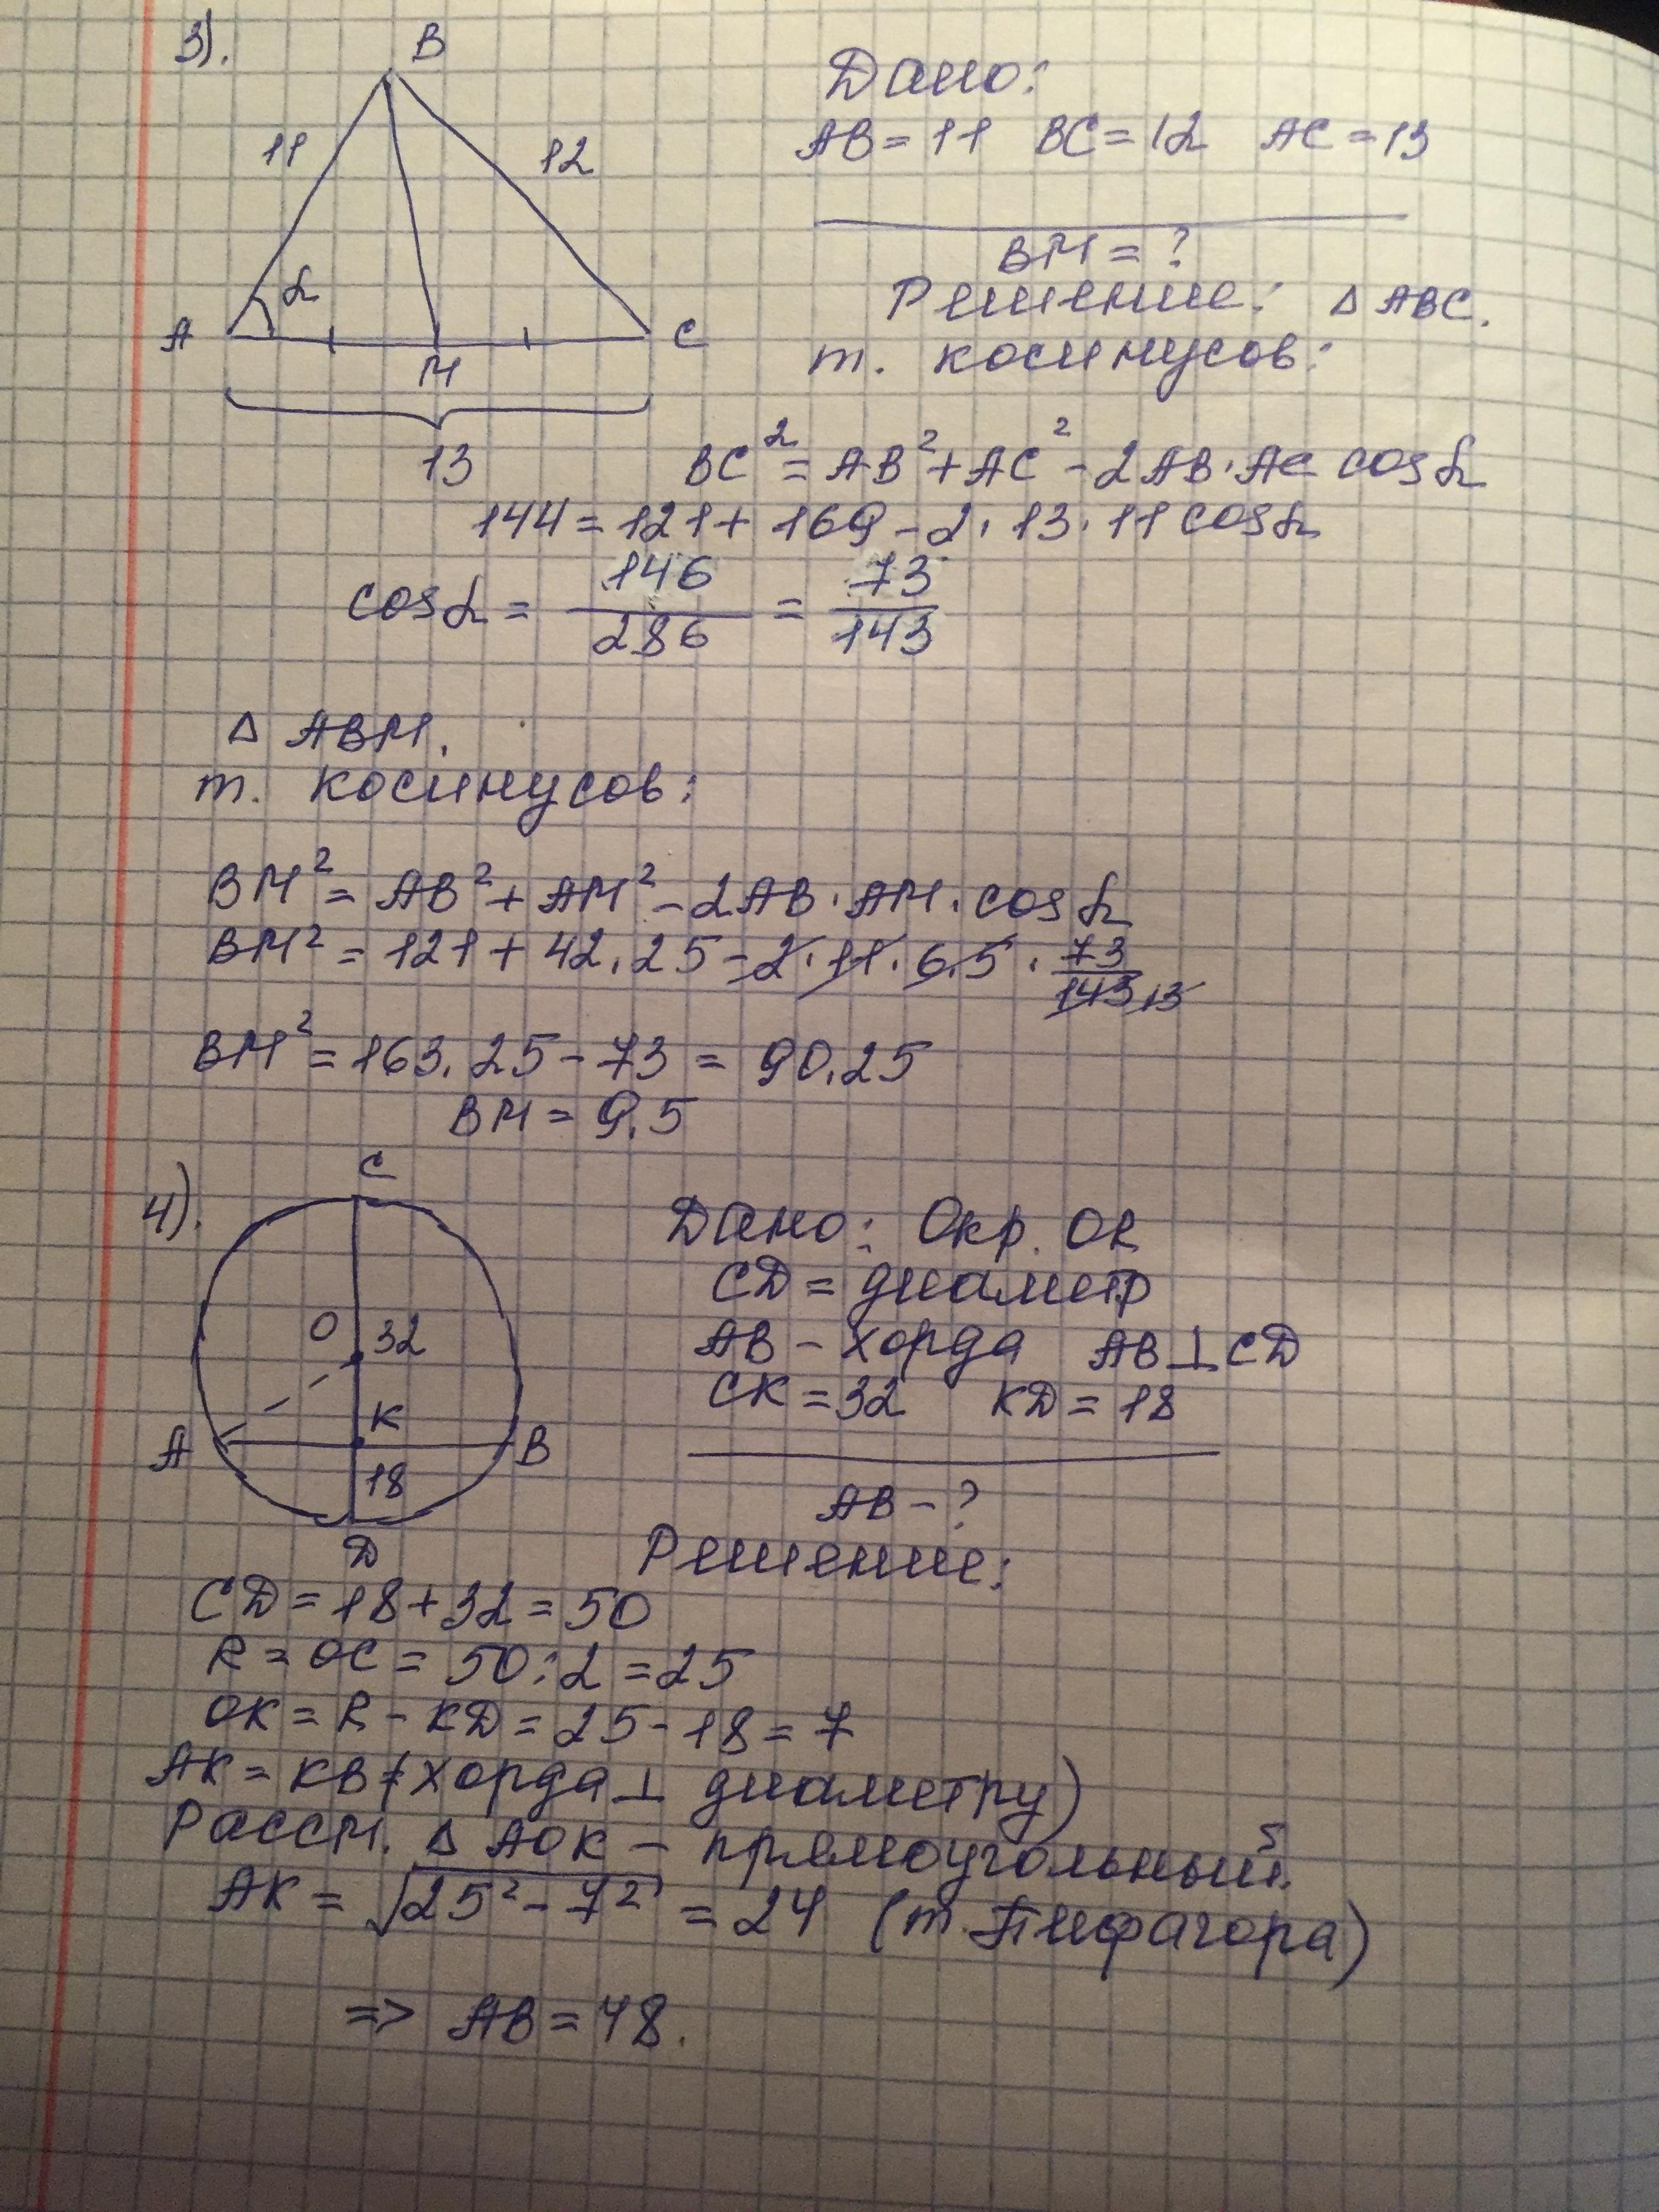 3).
B
11
12
α
A
M
C
13
Дано:
AB = 11 BC = 12 AC = 13
BM = ?
Решение: △ ABC.
т. косинусов:
BC² = AB² + AC² - 2AB · AC cos α
144 = 121 + 169 - 2 · 13 · 11 cos α
cos α = 146/286 = 73/143
△ ABM.
т. косинусов:
BM² = AB² + AM² - 2AB · AM · cos α
BM² = 121 + 42.25 - 2 · 11 · 6.5 · 73/143 13
BM² = 163.25 - 73 = 90.25
BM = 9.5
4).
C
O
32
K
A
B
18
D
Дано: Окр. OR
CD = диаметр
AB - хорда AB ⊥ CD
CK = 32 KD = 18
AB - ?
Решение:
CD = 18 + 32 = 50
R = OC = 50 : 2 = 25
OK = R - KD = 25 - 18 = 7
AK = KB (хорда ⊥ диаметру)
Рассм. △ AOK - прямоугольный.
AK = √25² - 7² = 24 (т. Пифагора)
=> AB = 48.